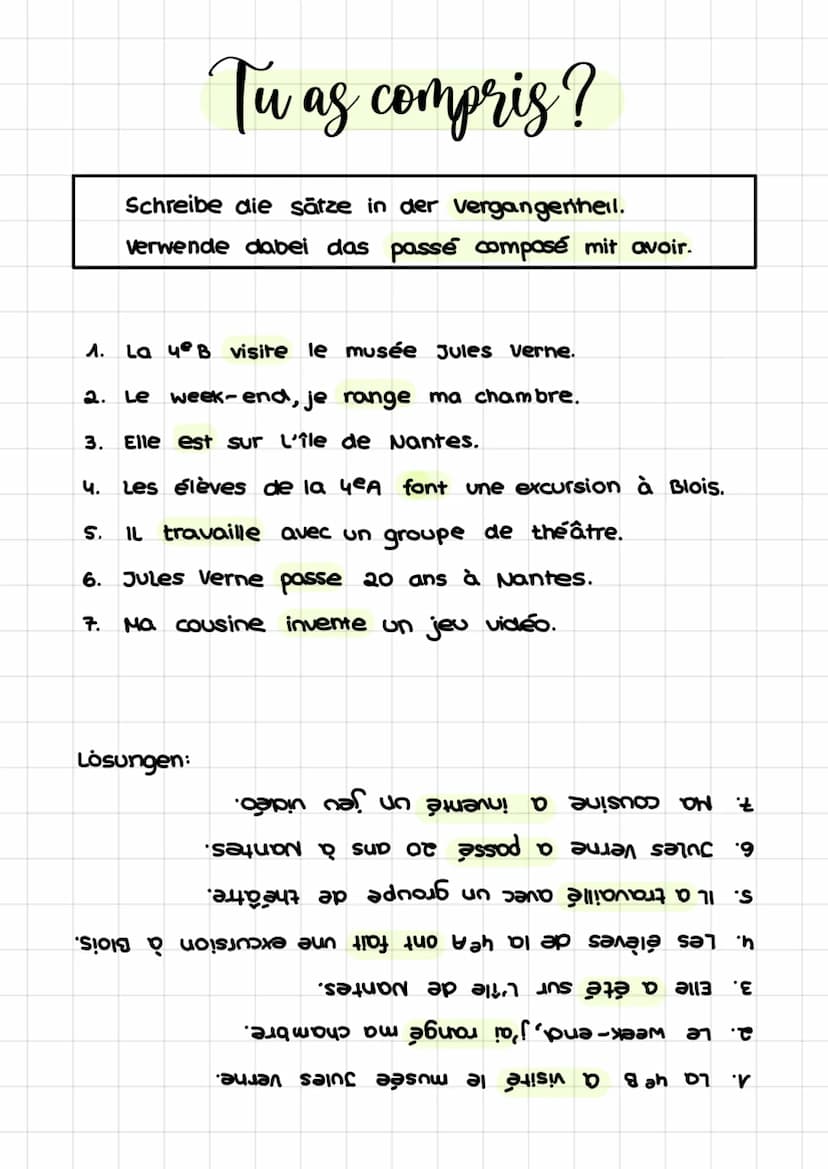 Tu as compris?
Schreibe die sätze in der Vergangenheit.
Verwende dabei das passé composé mit avoir.
1. La 4e B visite le musée Jules Verne.
2. Le week-end, je range ma chambre.
3. Elle est sur L'île de Nantes.
4. Les élèves de la 4eA font une excursion à Blois.
5. Il travaille avec un groupe de théâtre.
6. Jules Verne passe 20 ans à Nantes.
7. Ma cousine invente un jeu vidéo.
Lösungen:
7. Ma cousine a inventé un jeu vidéo.
6. Jules Verne a passé 20 ans à Nantes.
5. Il a travaillé avec un groupe de théâtre.
4. Les élèves de la 4eA ont fait une excursion à Blois.
3. Elle a été sur L'île de Nantes.
2. Le week-end, j'ai rangé ma chambre.
1. La 4e B a visité le musée Jules Verne.